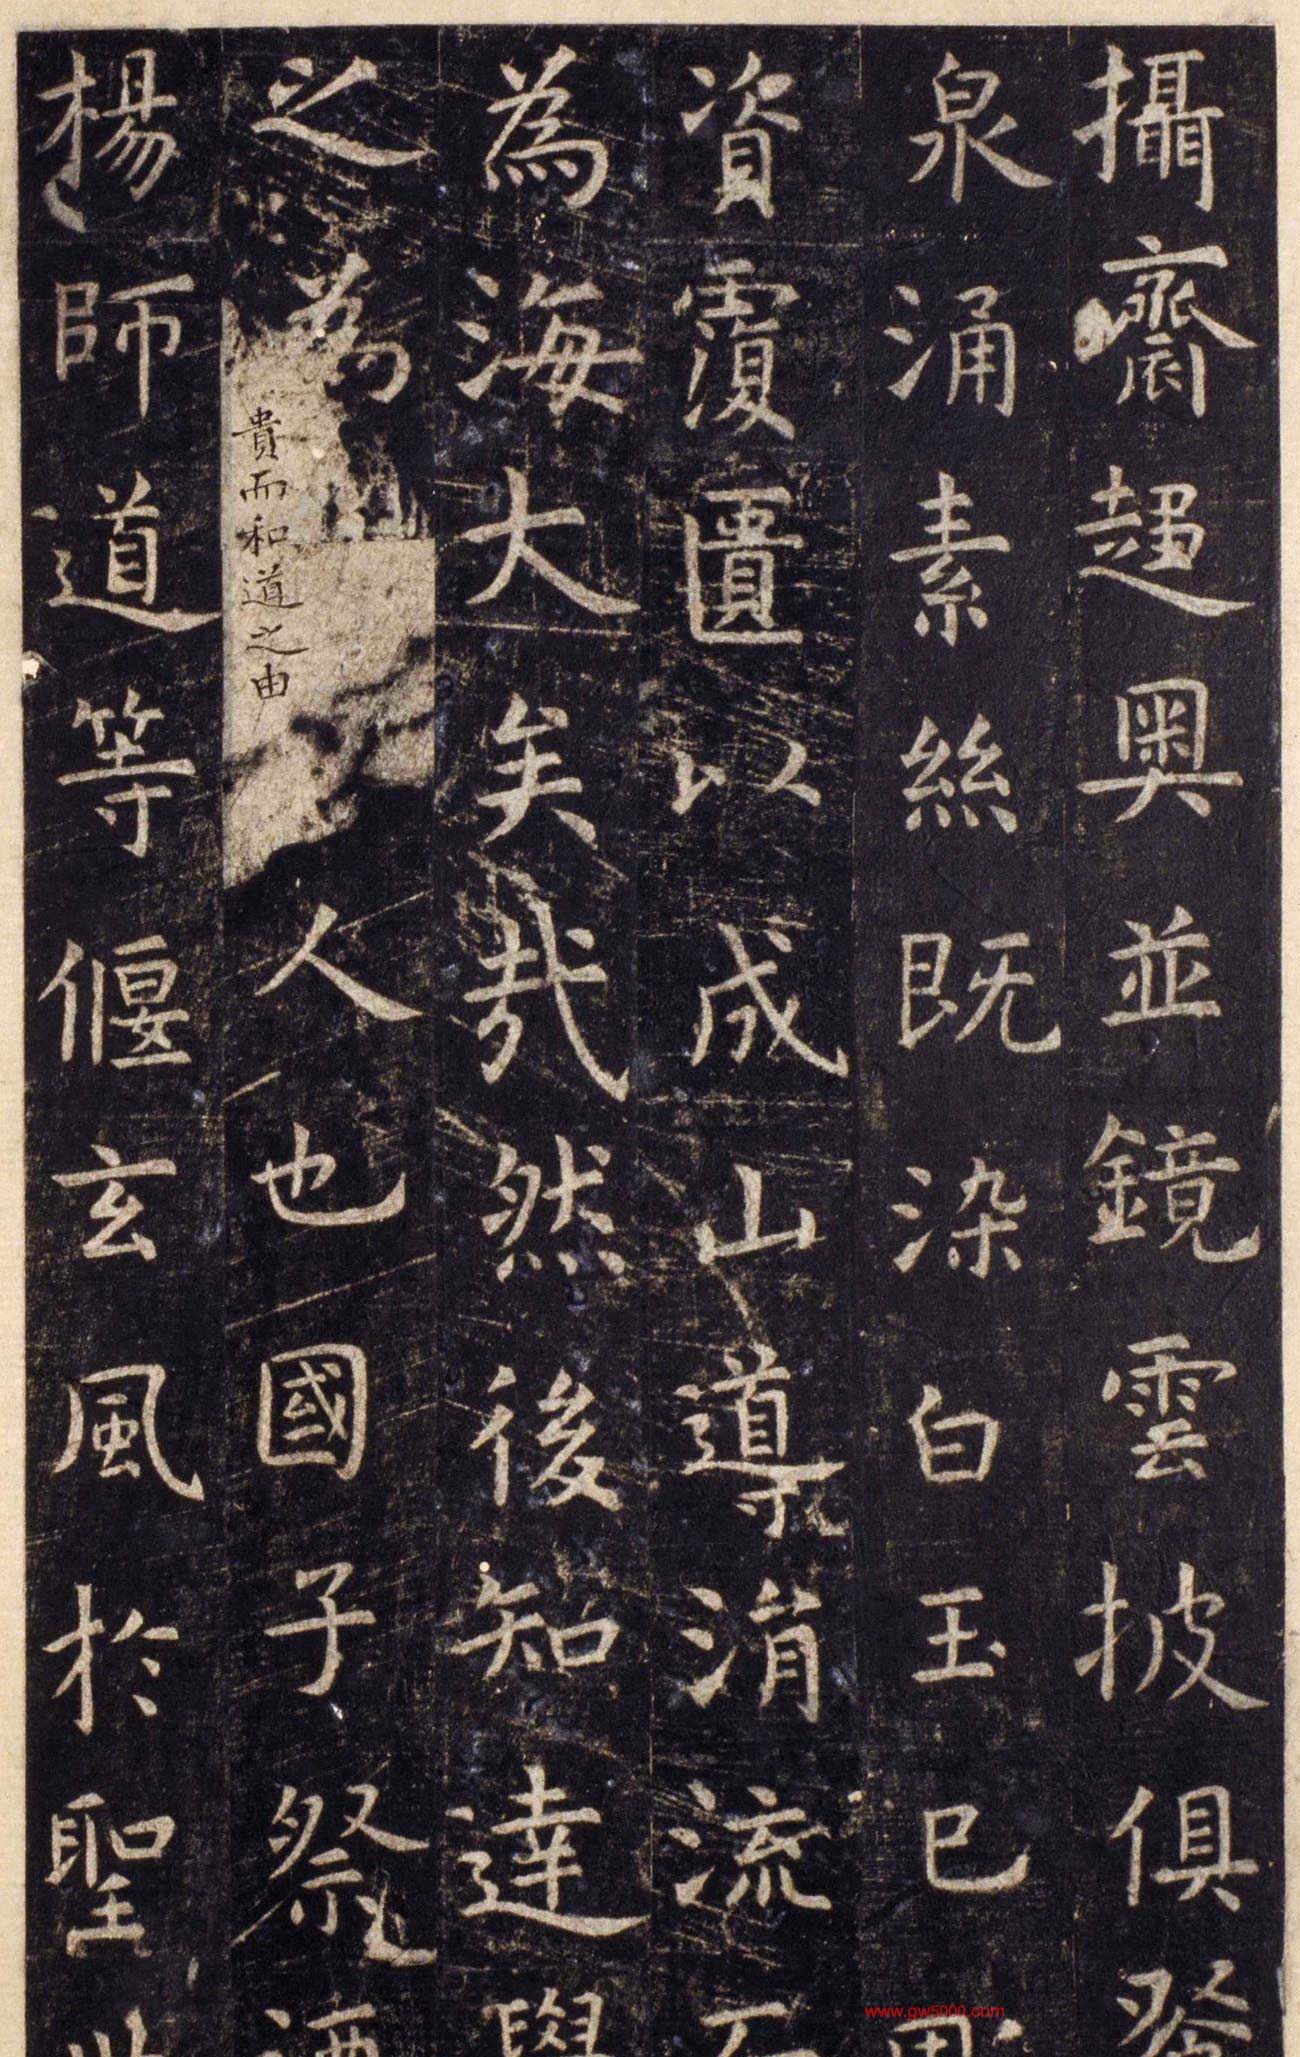 攝齋趍奧並鏡雲披俱發
泉涌素絲既染白玉已
資覆匱以成山導涓流
為海大矣哉然後知達學
之為人也國子祭酒
貴而和道之由
楊師道等偃玄風於聖世
www.gw5000.com